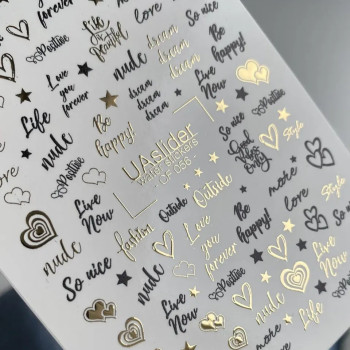 Life
is
Beautiful
Love you
forever
Positive
love
So nice
dream
dream
dream
Be
happy!
nude
Love
you
forever
Positive
nude
dream
dream
dream
Live
Now
Life
nude
Be
happy!
UAslider
Mini stickers
- OF-056 -
So nice
Good
Vibes
Only!
Style
Positive
Live
Now
fashion
Outside
Outside
more
love
nude
So nice
nude
Love
you
forever
Be
happy!
Style
Positive
Live
Now
Positive
Live
Now
nude
more
Life